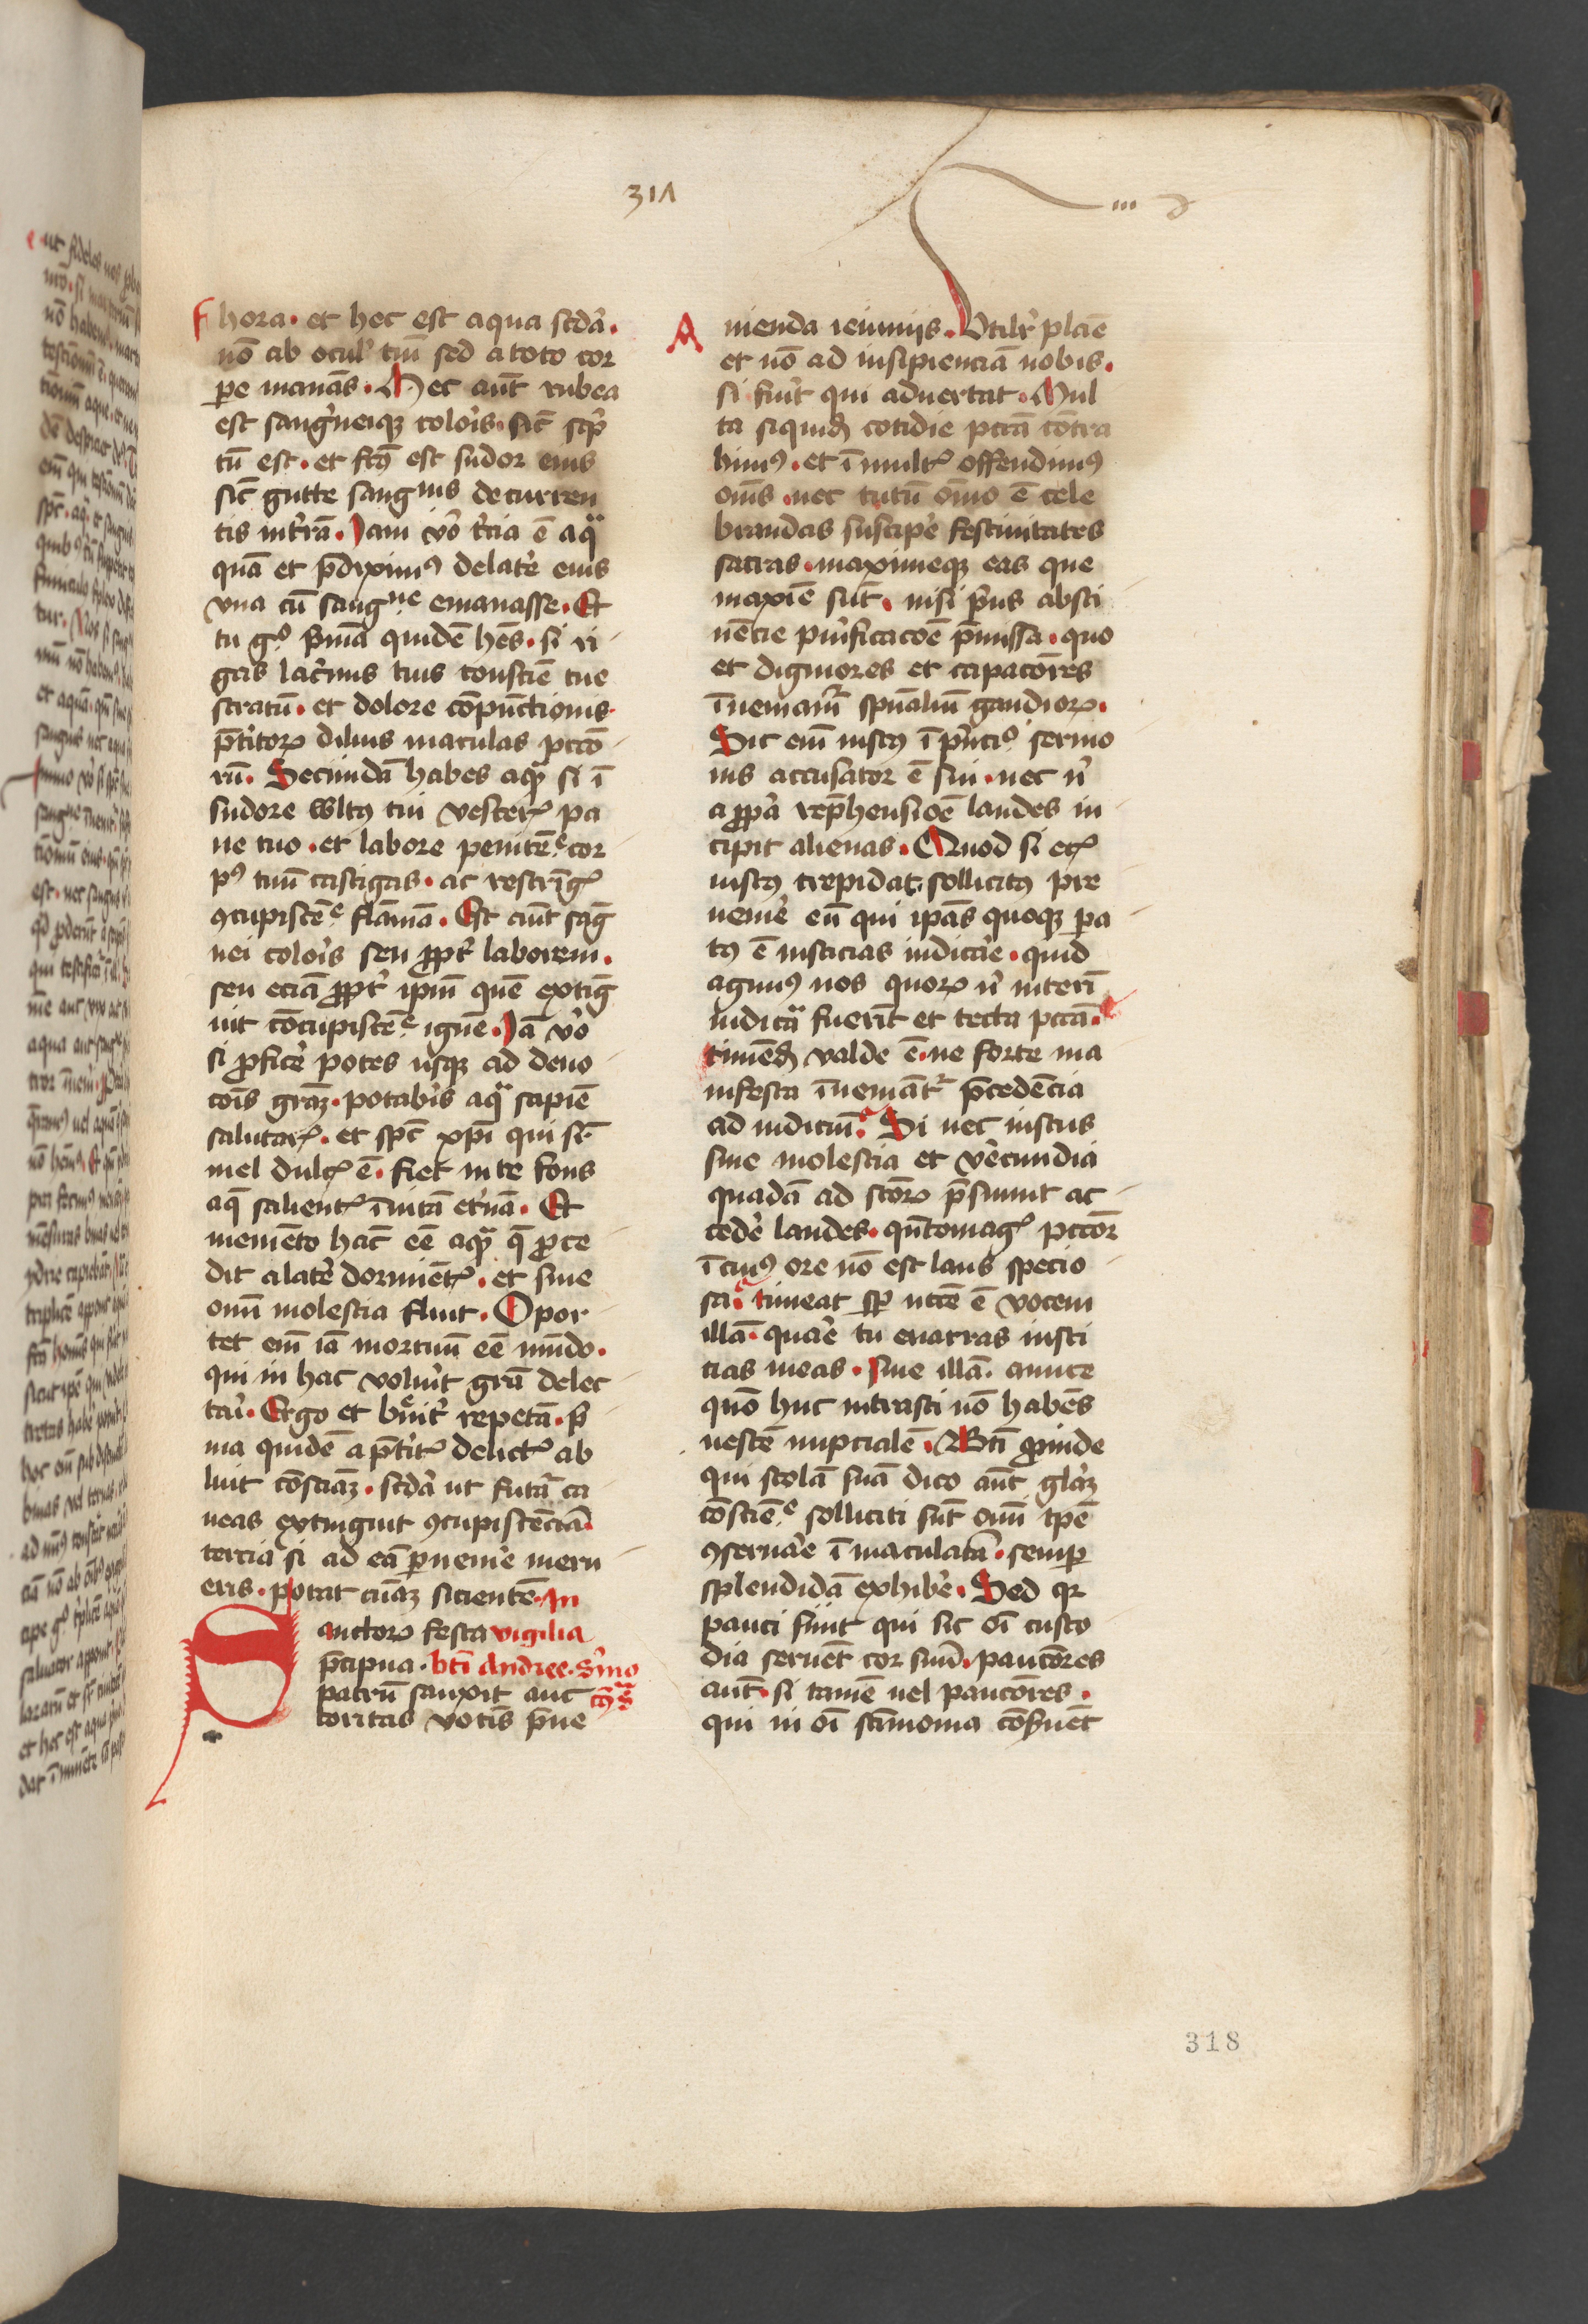 317
hora. et hec est aqua scda.
nō ab ocul' tm̄ sed a toto cor
pe manās. Hec aūt rubea
est sangͥneiqꝫ coloꝛis. sic̄ scͥp
tū est. et fc̄ꝰ est sudor eius
sic̄ gutte sangͥnis decurren
tis in tr̄ra. Jam vͦo tͥcia ē aqᷓ
quā et p̄diximꝰ de latē eius
vna cū sangͥne emanasse. Et
tu gͦ pͥmā quidē hēs. si ri
gas lacͥmis tuis conscīe tue
stratū. et dolore cōpunctionis
p̄titoꝝ diluis maculas pctō
rū. Secundā habes aqᷓ si ī
sudore wltꝰ tui vesceꝭ pa
ne tuo. et labore penitēᵉ cor
pꝰ tuū castigas. ac restrīgꝭ
ꝯcupiscēᵉ flāmā. Est aūt sāg
nei coloꝛis seu ꝓpt' laborem.
seu eciā ꝓpt' ip̄m quē extīg
uit cōcupiscēᵉ ignē. Jā vͦo
si ꝓficē potes usqꝫ ad deuo
cōis grāꝫ. potabis aqᷓ sapīe
salutarꝭ. et sp̄c xp̄i qui sr̄
mel dulcꝭ ē. fiet in te fons
aq̄ salientꝭ ī uitā et'nā. Et
memēto hāc eē aqᷓ q̄ ꝓce
dit a latē dormiētꝭ. et sine
omī molestia fluit. Opor
tet em̄ iā mortuū eē mūdo.
qui in hac voluīt grā delec
tari. Ergo et bͬeuit' repetā. pͥ
ma quidē a p̄titꝭ delictꝭ ab
luit cōsciāꝫ. scdā ut futā ca
ueas extinguit ꝯcupiscēciā.
tercia si ad eā ꝑuenīe meru
eris. potat aīaꝫ sicientē. In
Sanctoꝝ festa vigilia
p̄cipua. bt̄i Andree. Sͬmo
patrū sanxit auc
toritas votis p̄ue
nienda ieiuniis. Vtilr' plāe
et nō ad insipienciā nobis.
si fuīt qui aduertat. Mul
ta siquidē cotidie pctā cōtra
himꝰ. et ī multꝭ offendimꝰ
om̄s. nec tutū oīno ē cele
brandas suscipē festiuitates
sacras. maximeqꝫ eas que
maxīe sūt. nisi pͥus absti
nēcie purͥficacōe p̄missa. quo
et digniores et capacōres
īueniamͬ spūaliū gaudioꝝ.
Sic em̄ iustꝰ ī pͥncͦ sermo
nis accusator ē sui. nec nͥ
a ꝓpͥa rep̄hensiōe laudes in
cipit alienas. Quod si etꝭ
iustꝰ trepidat. sollicitꝰ pre
uenīe eū qui ip̄as quoqꝫ pa
tꝰ ē iusticias iudicāe. quid
agimꝰ nos quoꝝ nͥ interī
iudicᷓ fuerīt et tecta pctā.
timēdū valde ē. ne forte ma
nifesta īueniāt' p̄cedēcia
ad iudiciū. Si nec iustus
sine molestia et v̄ecundia
quadā ad sctōꝝ p̄sumit ac
cedē laudes. qn̄tomagꝭ pctōr̄
ī cuiꝰ ore nō est laus specio
sa. timeat sꝑ ncc̄e ē vocem
illā. quāe tu enarras iusti
cias meas. siue illā. amice
quō huc intrasti nō habēs
uestē nupcialē. Bt̄i ꝓinde
qui stolā suā dico aūt gl'ꝫ
cōscīeᵉ solliciti sūt omī tp̄e
ꝯseruāe ī maculatā. semꝑ
splendidā exhibē. Sed qꝛ
pauci sūt qui sic oī custo
dia seruēt cor suū. paucōres
aūt. si tamē uel paucōres.
qui in oī sc̄imonia cōsͬuēt
318